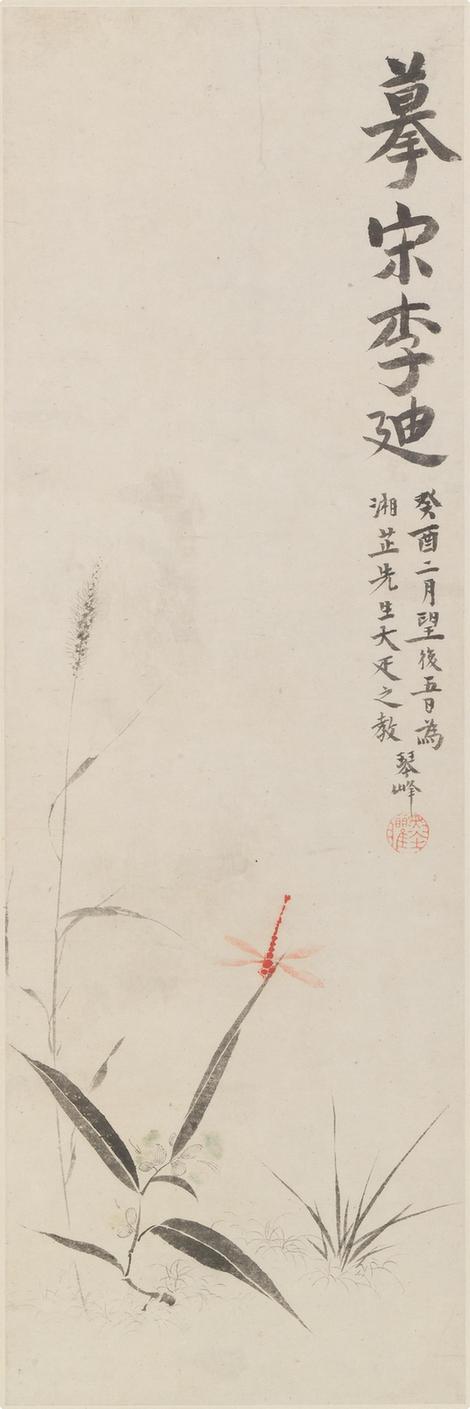 摹宋李廸
癸酉二月望後五日為
湘芷先生大疋之教
琴峰